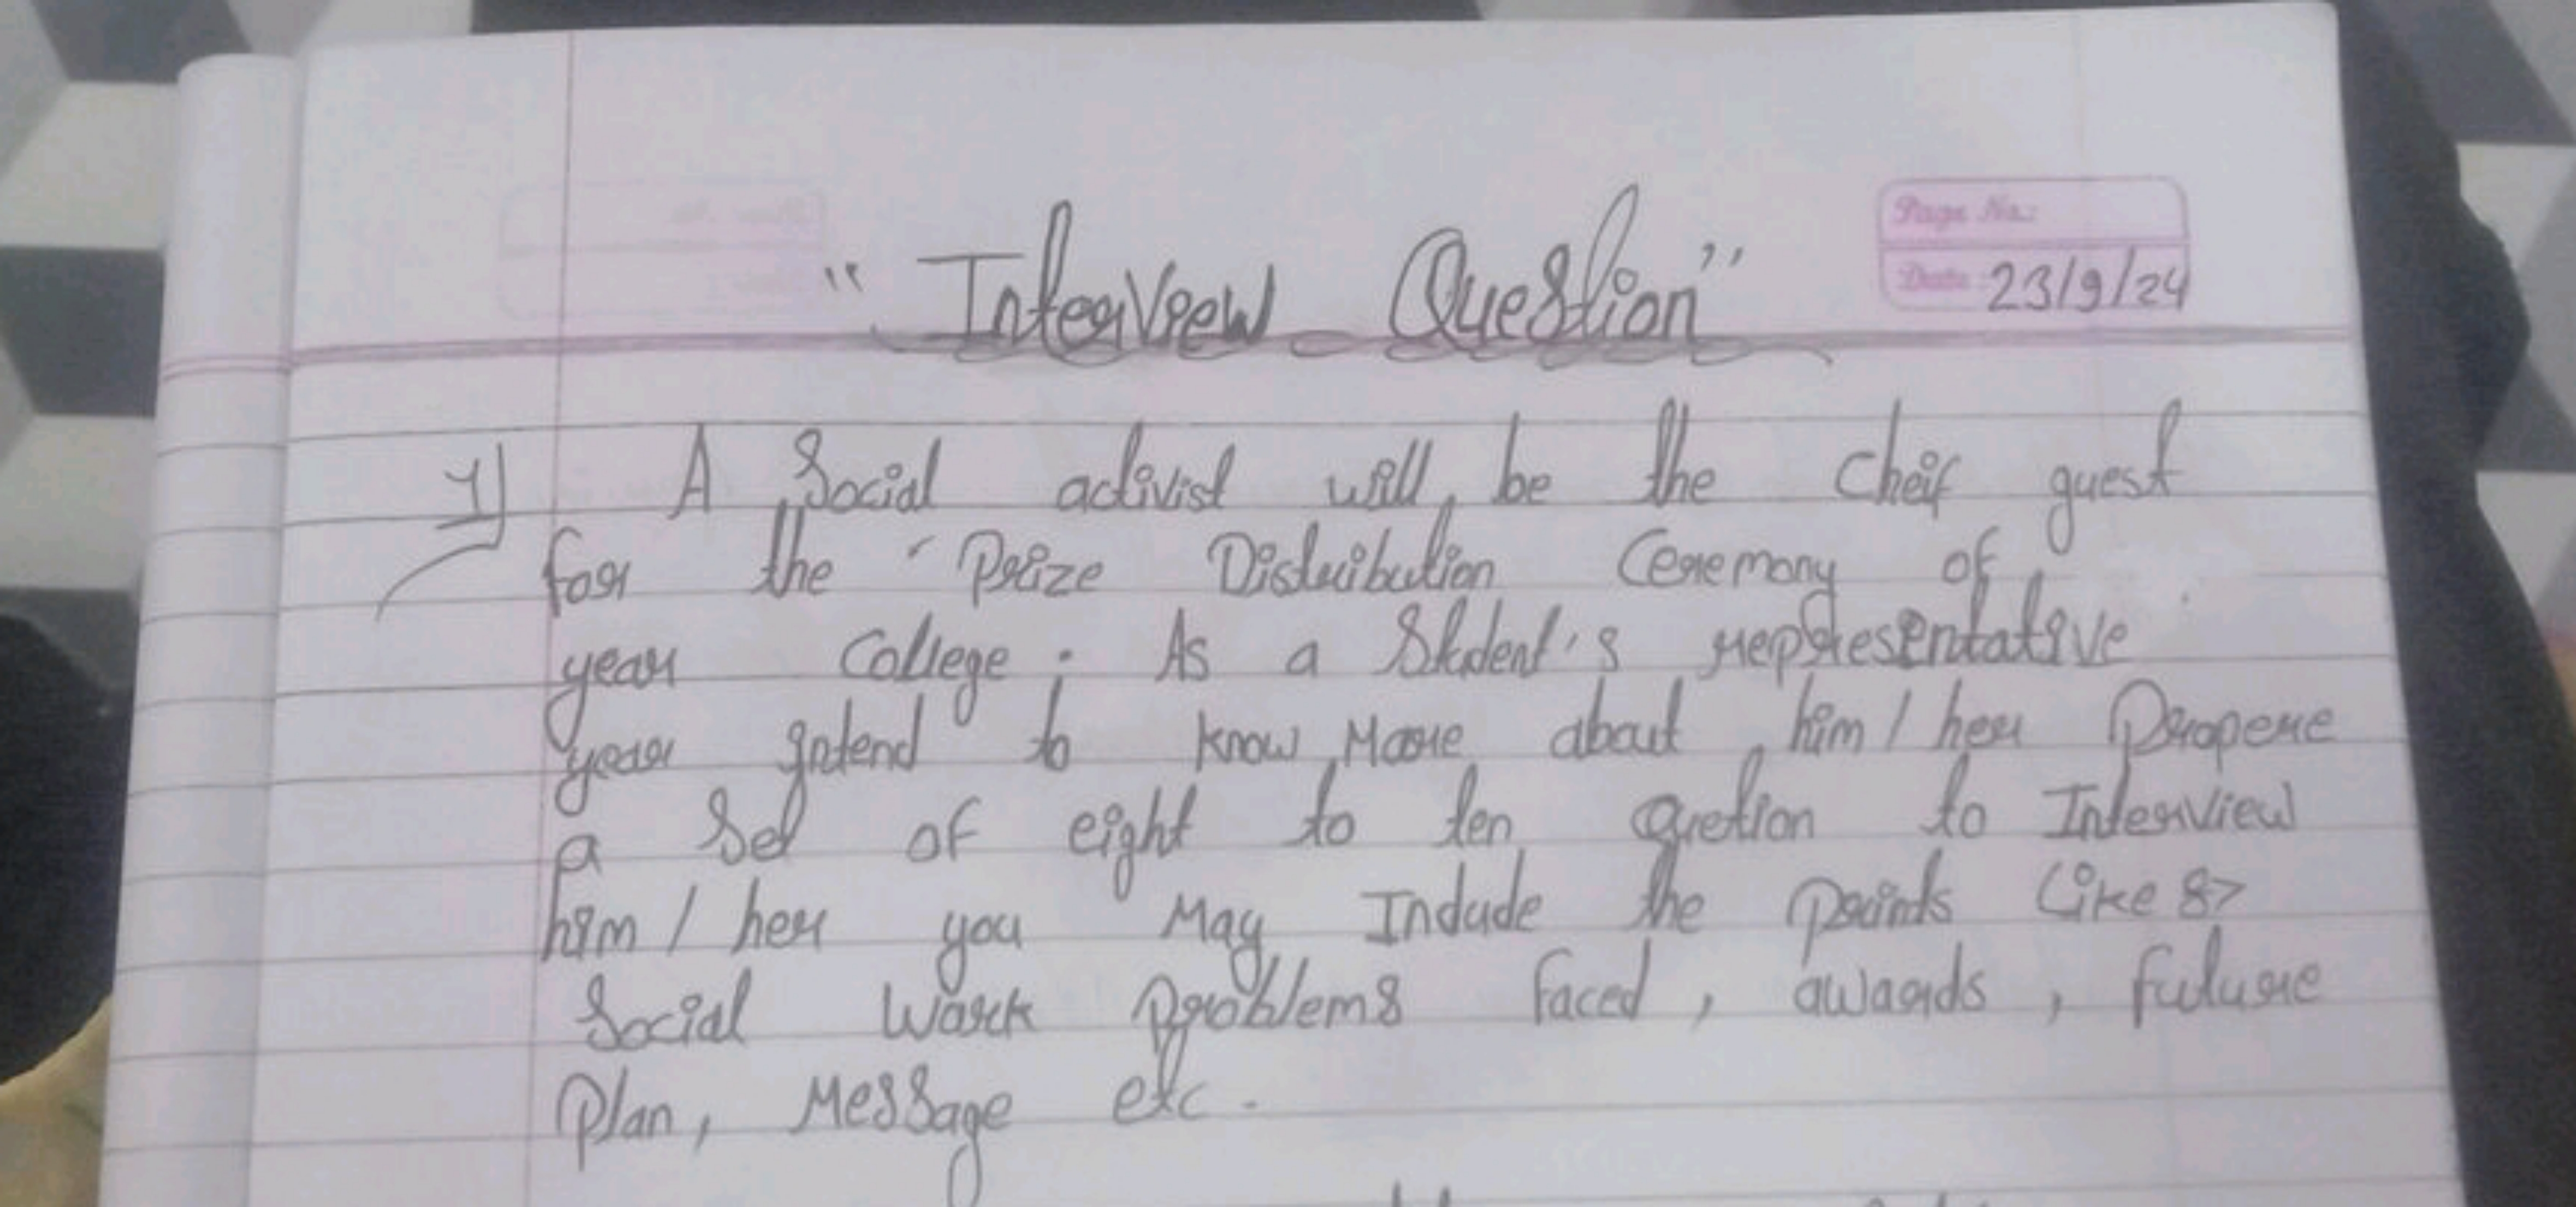 Page No.:
Date 23/9/24
"Interview Question"
1) A Social activist will be the cheif guest
for the Prize Distribution Ceremony of
year College. As a Student's representative
year Intend to know More about him / her Propere
a Set of eight to ten Qretion to Interview
him / her you May Include the points Like :>
Social Work Problems faced, awards, future
Plan, Message etc.